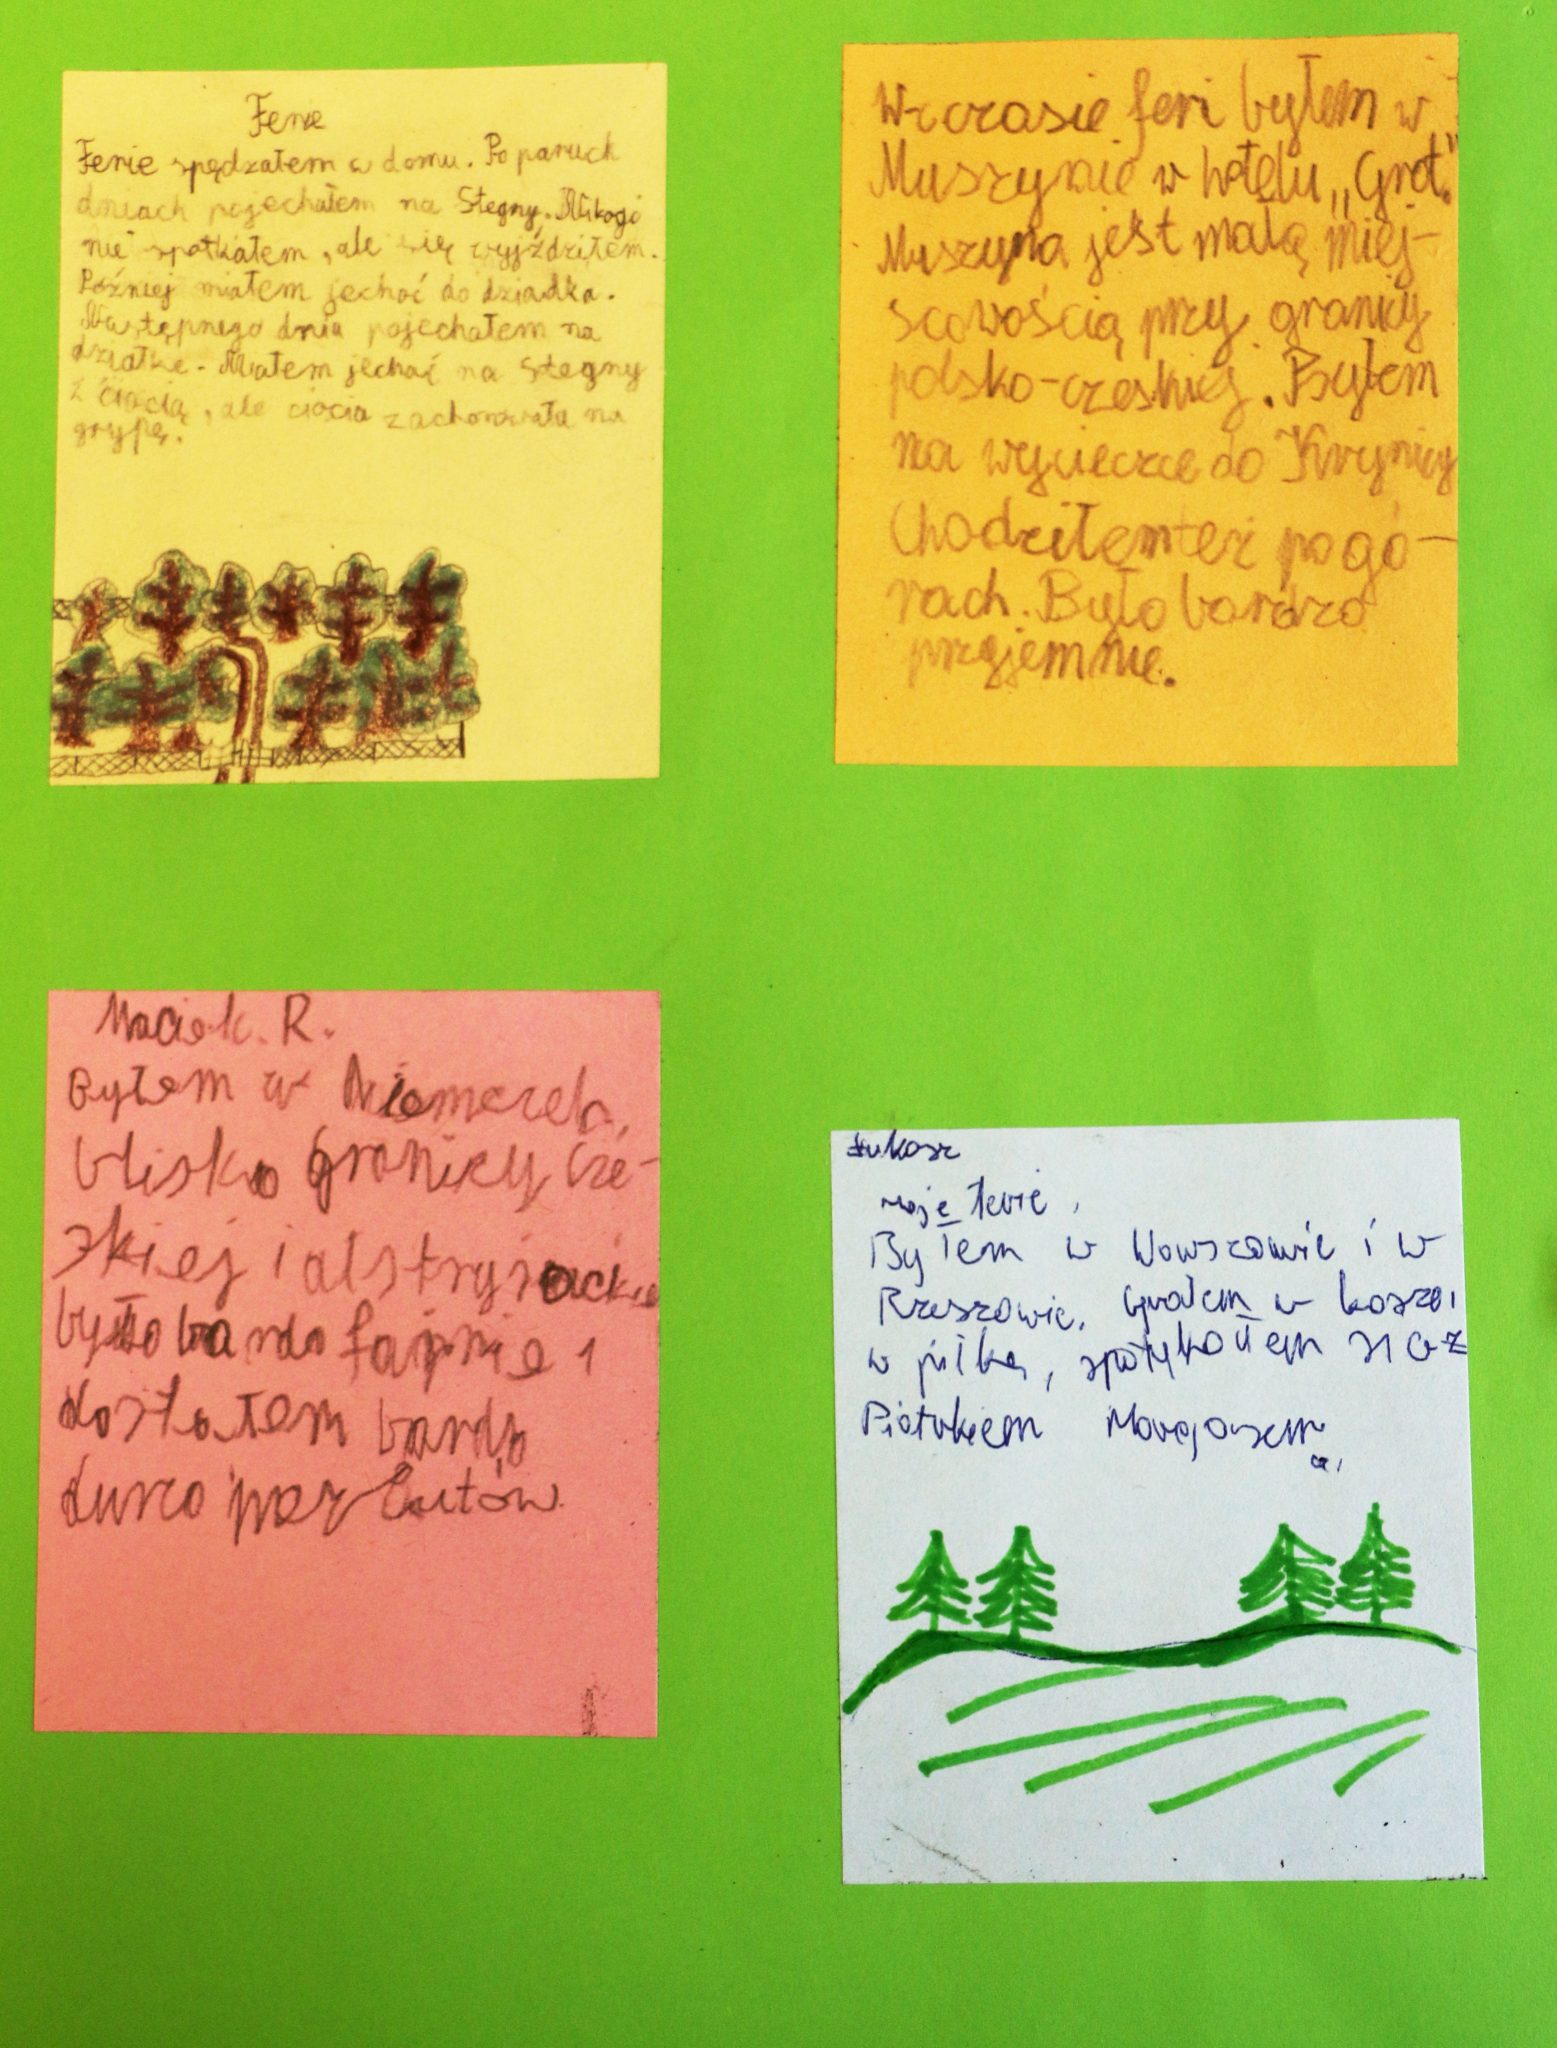 Ferie
Ferie spędzałem w domu. Po paruch
dniach pojechałem na Stegny. Nikogo
nie spotkałem, ale się wyjździłem.
Później miałem jechać do dziadka.
Następnego dnia pojechałem na
działke. Miałem jechać na Stegny
z ciocią, ale ciocia zachorowała na
grypę.
W czasie feri byłem w
Muszynie w hotelu „Grot."
Muszyna jest małą miej-
scowością przy granicy
polsko-czeskiej. Byłem
na wycieczce do Krynicy
Chodziłem też po gó-
rach. Było bardzo
przyjemnie.
Maciek. R.
Byłem w Niemczech,
blisko granicy cze-
skiej i
było bardo fajnie i
dostałem bardo
dużo
Łukasz
Moje ferie.
Byłem w Warszawie i w
Rzeszowie. Grałem w kosza i
w piłkę, spotykałem się z
Piotrkiem